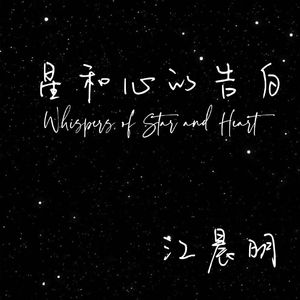 星和心的告白
Whispers of Star and Heart
江晨明